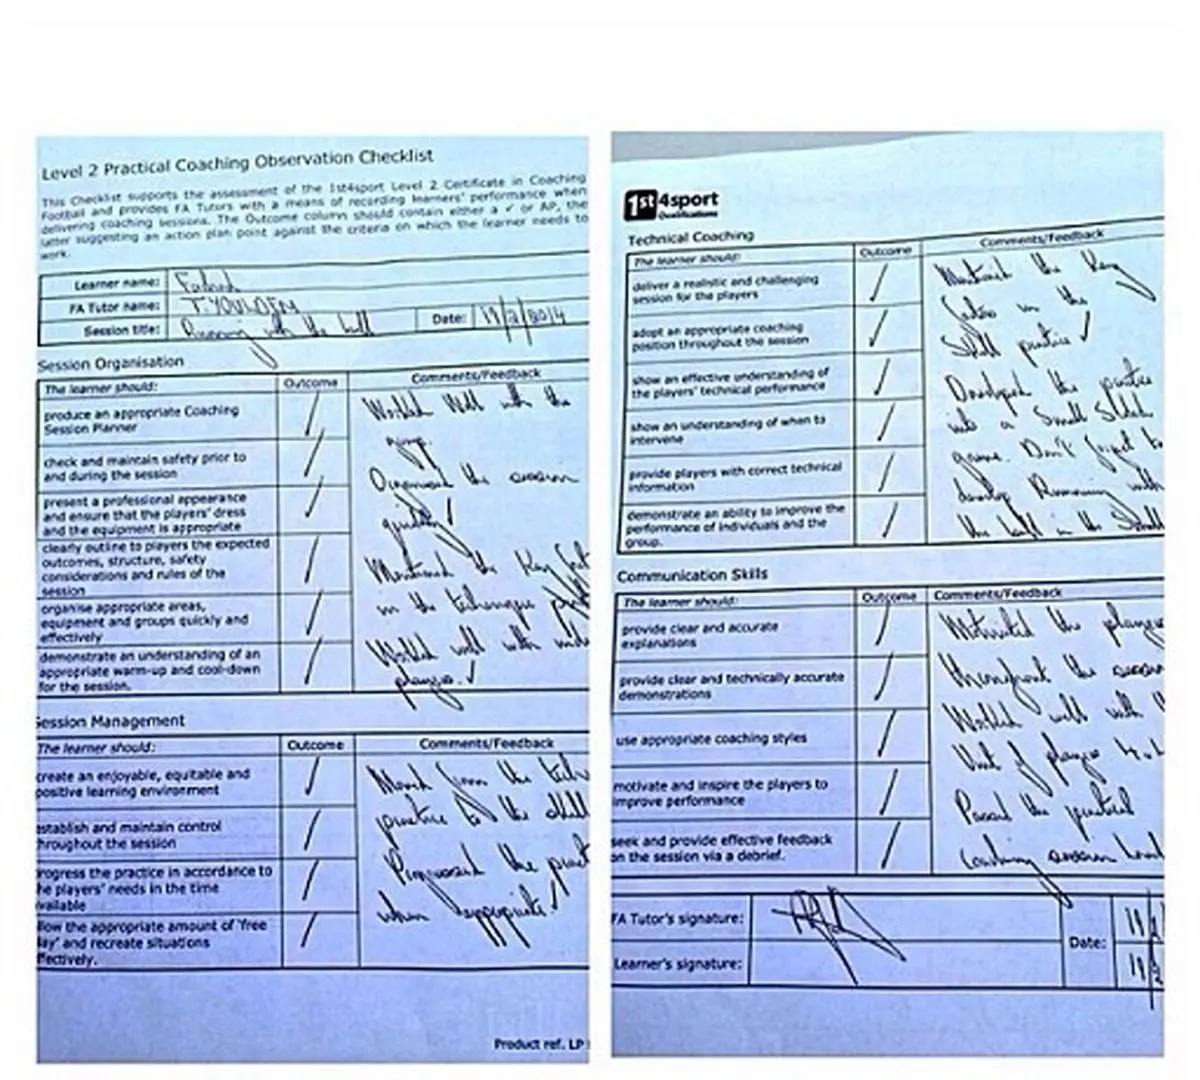 Level 2 Practical Coaching Observation Checklist
This Checklist supports the assessment of the 1st4sport Level 2 Certificate in Coaching
Football and provides FA Tutors with a means of recording learners' performance when
delivering coaching sessions. The Outcome column should contain either a ✓ or AP, the
latter suggesting an action plan point against the criteria on which the learner needs to
work.
Learner name:
FA Tutor name:
Session title: Running with the ball Date:
Session Organisation
The learner should: Outcome Comments/Feedback
produce an appropriate Coaching
Session Planner
check and maintain safety prior to
and during the session
present a professional appearance
and ensure that the players' dress
and the equipment is appropriate
clearly outline to players the expected
outcomes, structure, safety
considerations and rules of the
session
organise appropriate areas,
equipment and groups quickly and
effectively
demonstrate an understanding of an
appropriate warm-up and cool-down
for the session.
Worked well with the
group.
Organised the session
quickly ✓
Mentioned the Key
in the technique
Worked well with
players. ✓
Session Management
The learner should: Outcome Comments/Feedback
create an enjoyable, equitable and
positive learning environment
establish and maintain control
throughout the session
rogress the practice in accordance to
he players' needs in the time
vailable
llow the appropriate amount of 'free
lay' and recreate situations
ffectively.
Moved from the tech
practice to the skill
Progressed the pract
when appropriate. ✓
Product ref. LP
1st4sport
Qualifications
Technical Coaching
The learner should: Outcome Comments/Feedback
deliver a realistic and challenging
session for the players
adopt an appropriate coaching
position throughout the session
show an effective understanding of
the players' technical performance
show an understanding of when to
intervene
provide players with correct technical
information
demonstrate an ability to improve the
performance of individuals and the
group.
Mentioned the Key
factors in the
Skill practice ✓
Developed the practice
into a Small Sided
game. Don't forget to
develop Running with
the ball in the Small
Communication Skills
The learner should: Outcome Comments/Feedback
provide clear and accurate
explanations
provide clear and technically accurate
demonstrations
use appropriate coaching styles
motivate and inspire the players to
improve performance
seek and provide effective feedback
on the session via a debrief.
Motivated the players
throughout the session
Worked well with
of players
Passed the practical
Coaching session
FA Tutor's signature:
Date:
Learner's signature: